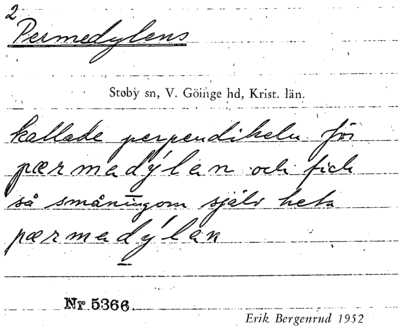 2
Permedylens
Stoby sn, V. Göinge hd, Krist. län.
kallade perpendikeln för
pærmadýlan och fick
så småningom själv heta
pærmadýlan
Nr. 5366.
Erik Bergenrud 1952